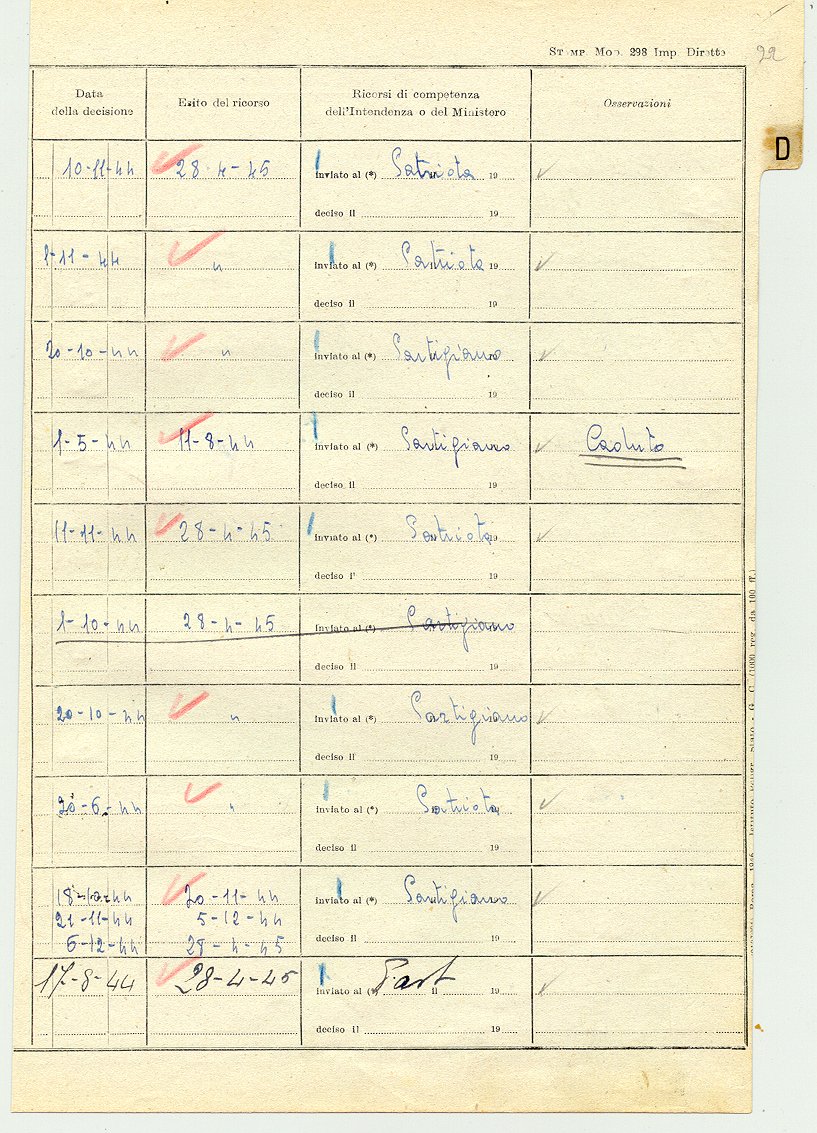 STAMP. MOD. 298 Imp. Dirette
22
D
Data della decisione
Esito del ricorso
Ricorsi di competenza dell'Intendenza o del Ministero
Osservazioni
10-11-44 28-4-45 inviato al (*) Patriota 19
deciso il 19
1-11-44 " inviato al (*) Patriota 19
deciso il 19
20-10-44 " inviato al (*) Partigiano
deciso il 19
1-5-44 11-8-44 inviato al (*) Partigiano Caduto
deciso il 19
11-11-44 28-4-45 inviato al (*) Patriota 19
deciso il 19
1-10-44 28-4-45 inviato al (*) Partigiano
deciso il 19
20-10-44 " inviato al (*) Partigiano
deciso il 19
20-6-44 " inviato al (*) Patriota
deciso il 19
18-10-44 20-11-44 inviato al (*) Partigiano
21-11-44 5-12-44
6-12-44 28-4-45 deciso il 19
17-8-44 28-4-45 inviato al (*) Part il 19
deciso il 19
(1000 reg. da 100 ff.)